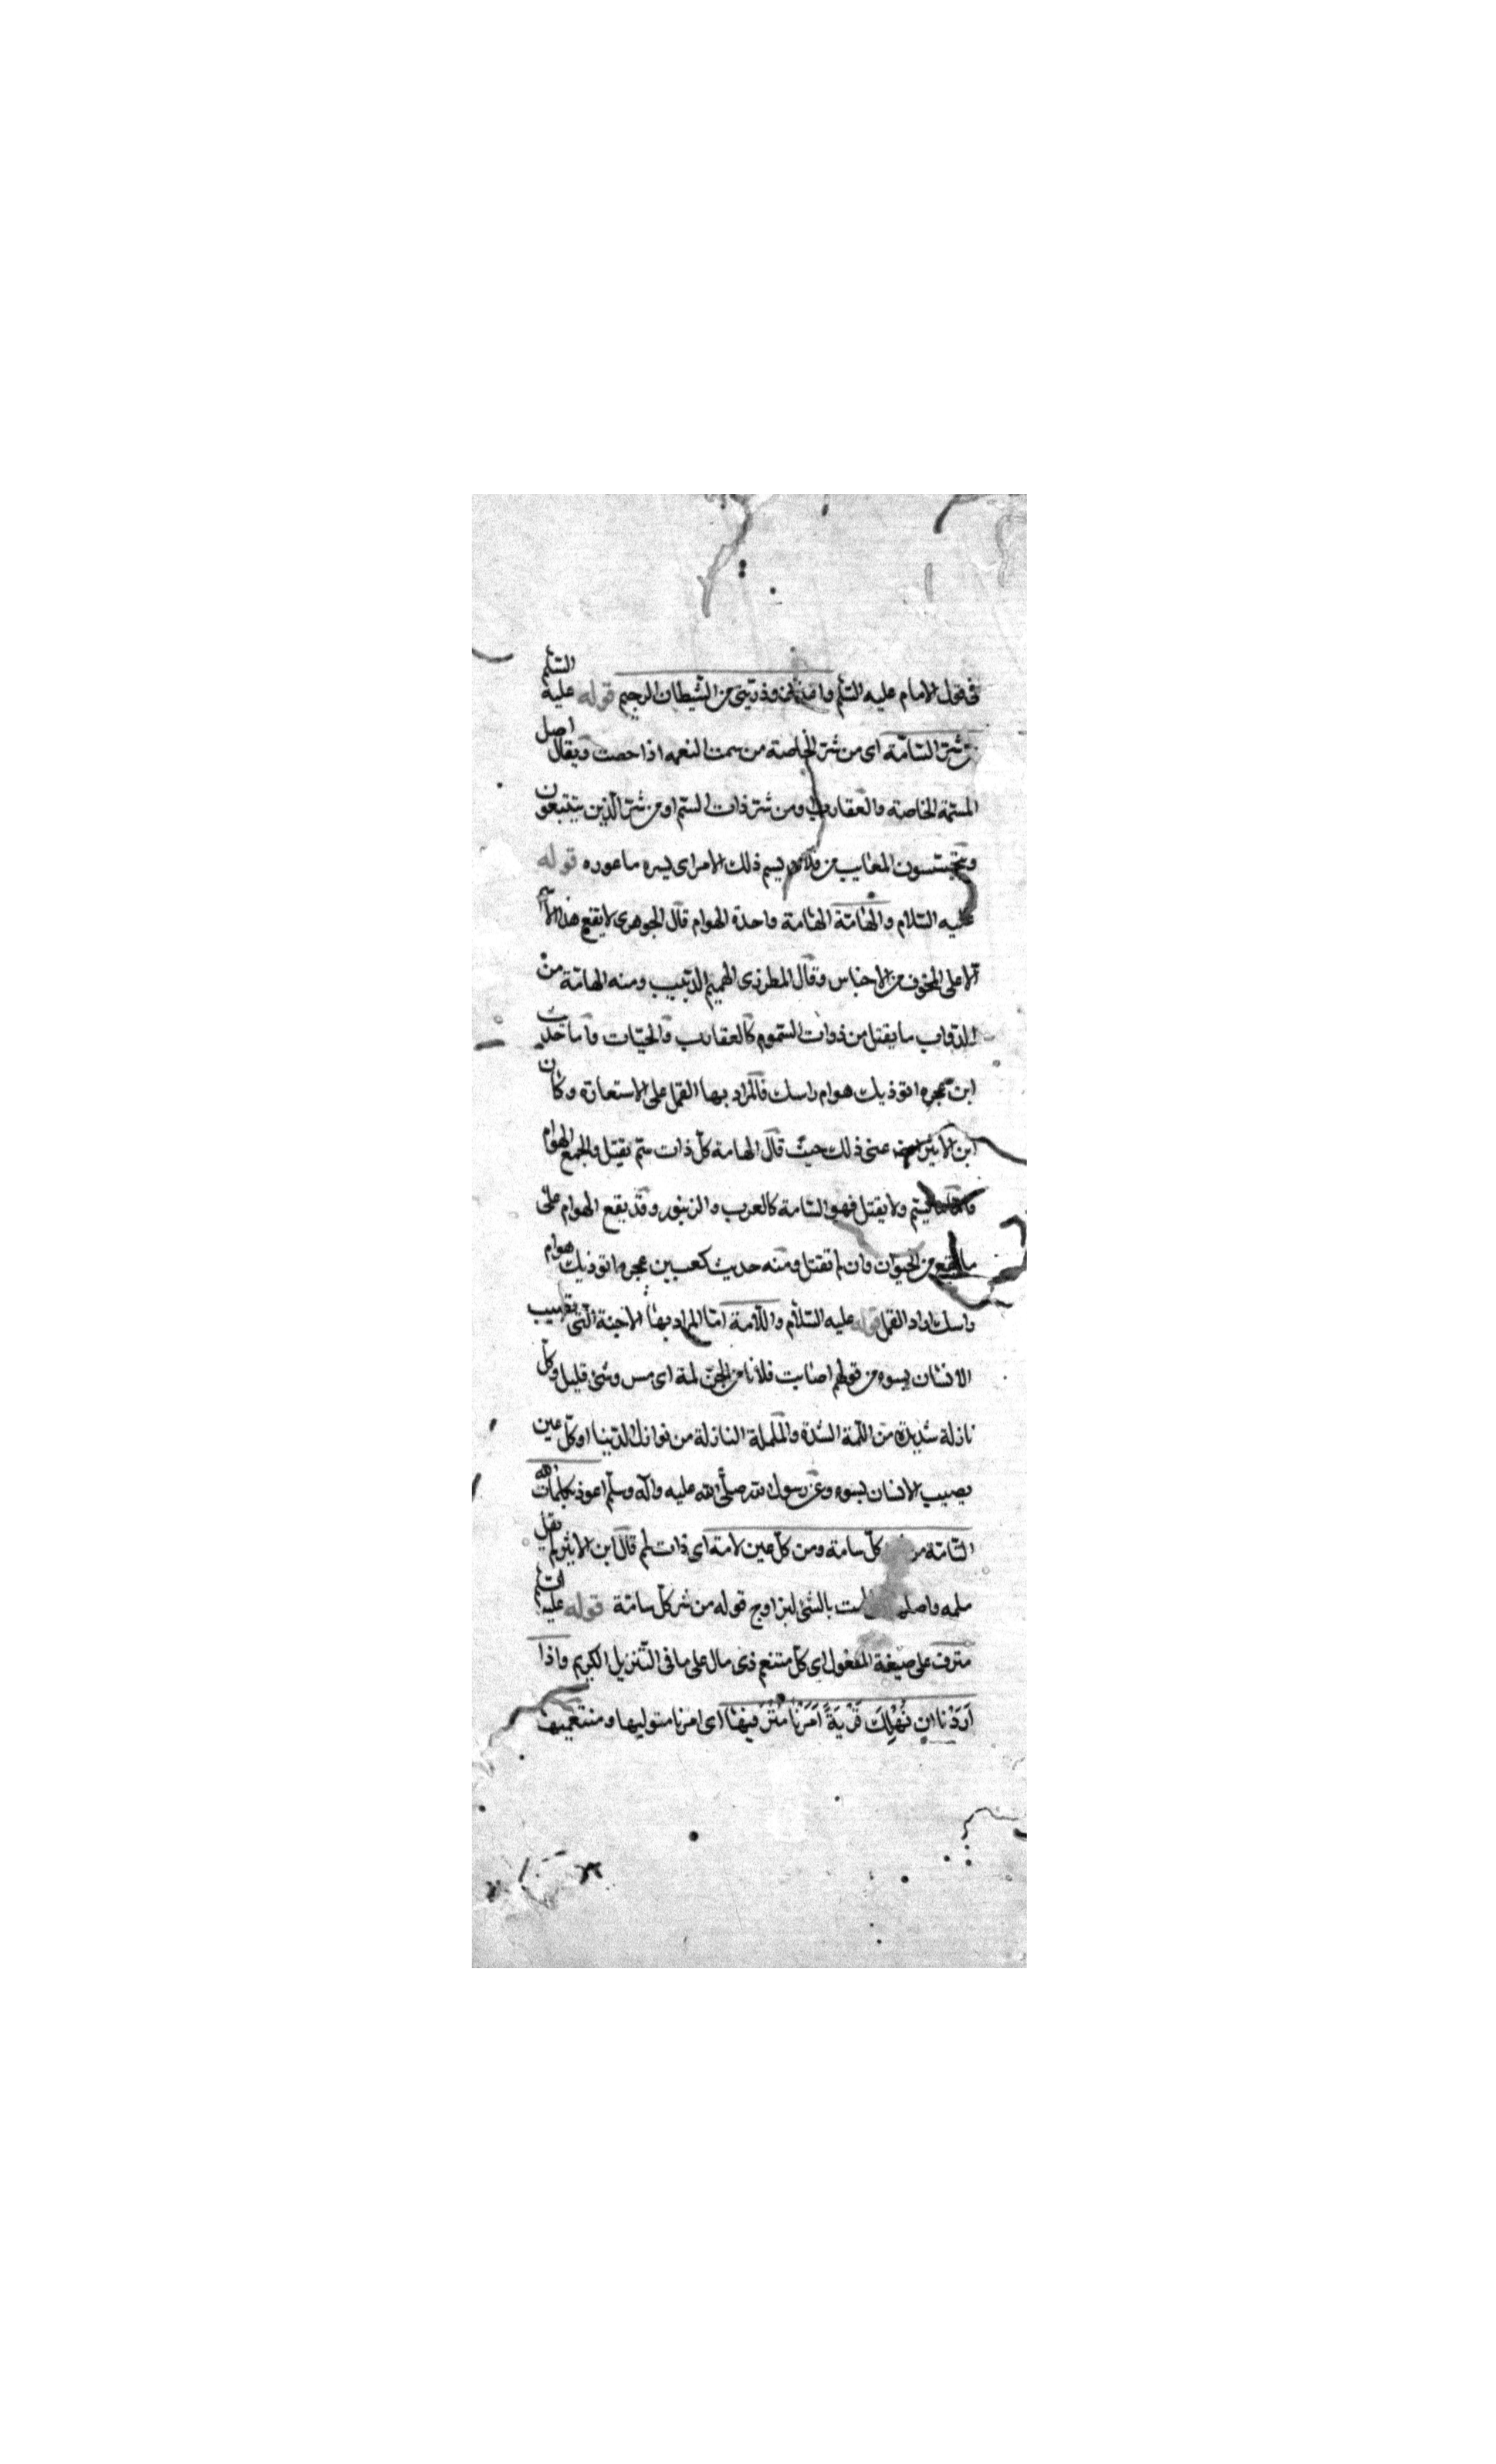 في قول الامام عليه السلم واعذني وذريتي من الشيطان الرجيم قوله عليه السلم
من شر السامة اى من شر الخاصة من سمت النعمه اذا خصت ويقال اصل
السمّة الخاصة والعقارب ومن شر ذات السم او من شر الذين يتتبعون
ويتجسسون المعايب من يسم ذلك الامر اى يسبره ما عوره قوله
عليه السلام والهامّة الهامة واحدة الهوام قال الجوهرى لا يقع هذا الاسم
الا على المخوف من الاحناس وقال المطرزى الهميم الدبيب ومنه الهامّة من
الدواب ما يقتل من ذوات السموم كالعقارب والحيّات واما حديث
ابن عجره اتوذيك هوام راسك فالمراد بها القمل على الاستعارة وكان
ابن الاثير عنى ذلك حيث قال الهامة كل ذات سم يقتل والجمع الهوام
فاما ما يسم ولا يقتل فهو السامة كالعرب والزنبور وقد يقع الهوام على
ما من الحيوان وان لم تقتل ومنه حديث كعب بن عجره اتوذيك هوام
راسك اراد القمل قوله عليه السلام واللامة اما المراد بها الاجنة التى تصيب
الانسان بسوء من قولهم اصابت فلانا من الجن لمة اى مس وشئ قليل وكل
نازلة شديدة من اللمة الشدة والململة النازلة من نوازل الدنيا او كل عين
يصيب الانسان بسوء وعن رسول الله صلى الله عليه وآله وسلم اعوذ بكلمات الله
التامة من كل سامة ومن كل عين لامة اى ذات لمم قال ابن الاثير لم يقل
ملمه واصلها بالشئ ليزاوج قوله من شر كل سامّة قوله عليه السلم
مترف على صيغة المفعول اى كل متنعم ذى مال على ما فى التنزيل الكريم واذا
اَرَدْنا ان نُهْلِكَ قَرْيَةً اَمَرْنَا مُتْرَفِيهَا اى امرنا متوليها ومتنعميها